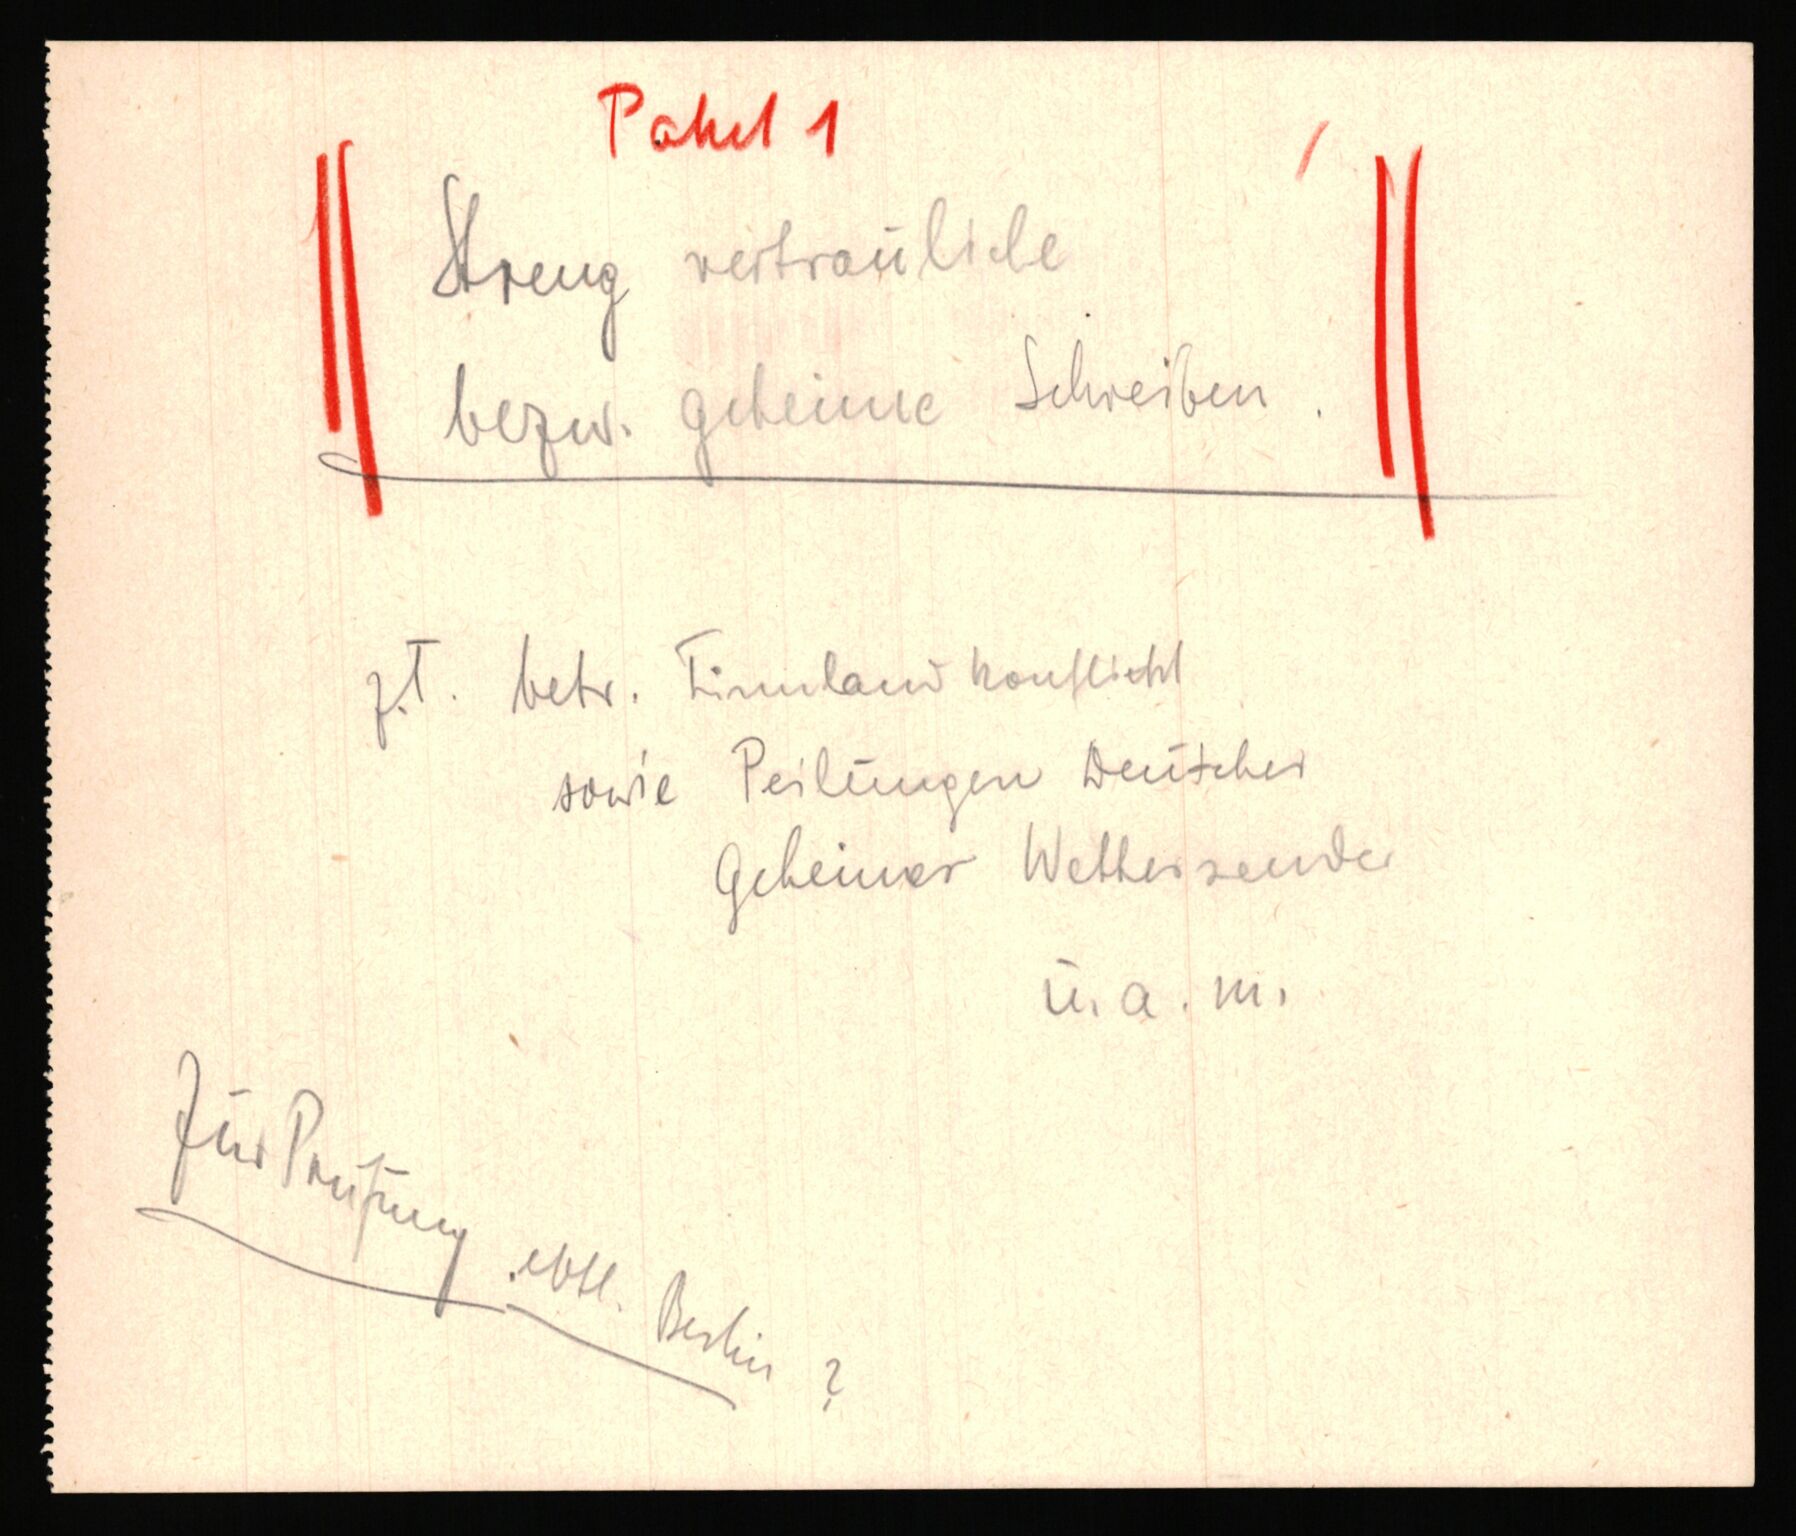 Paket 1
Streng vertrauliche
bezw. geheime Schreiben.
z.T. betr. Finnlandkonflikt
sowie Peilungen Deutscher
Geheimer Wettersender
u. a. m.
Zur Prüfung evtl. Berlin?